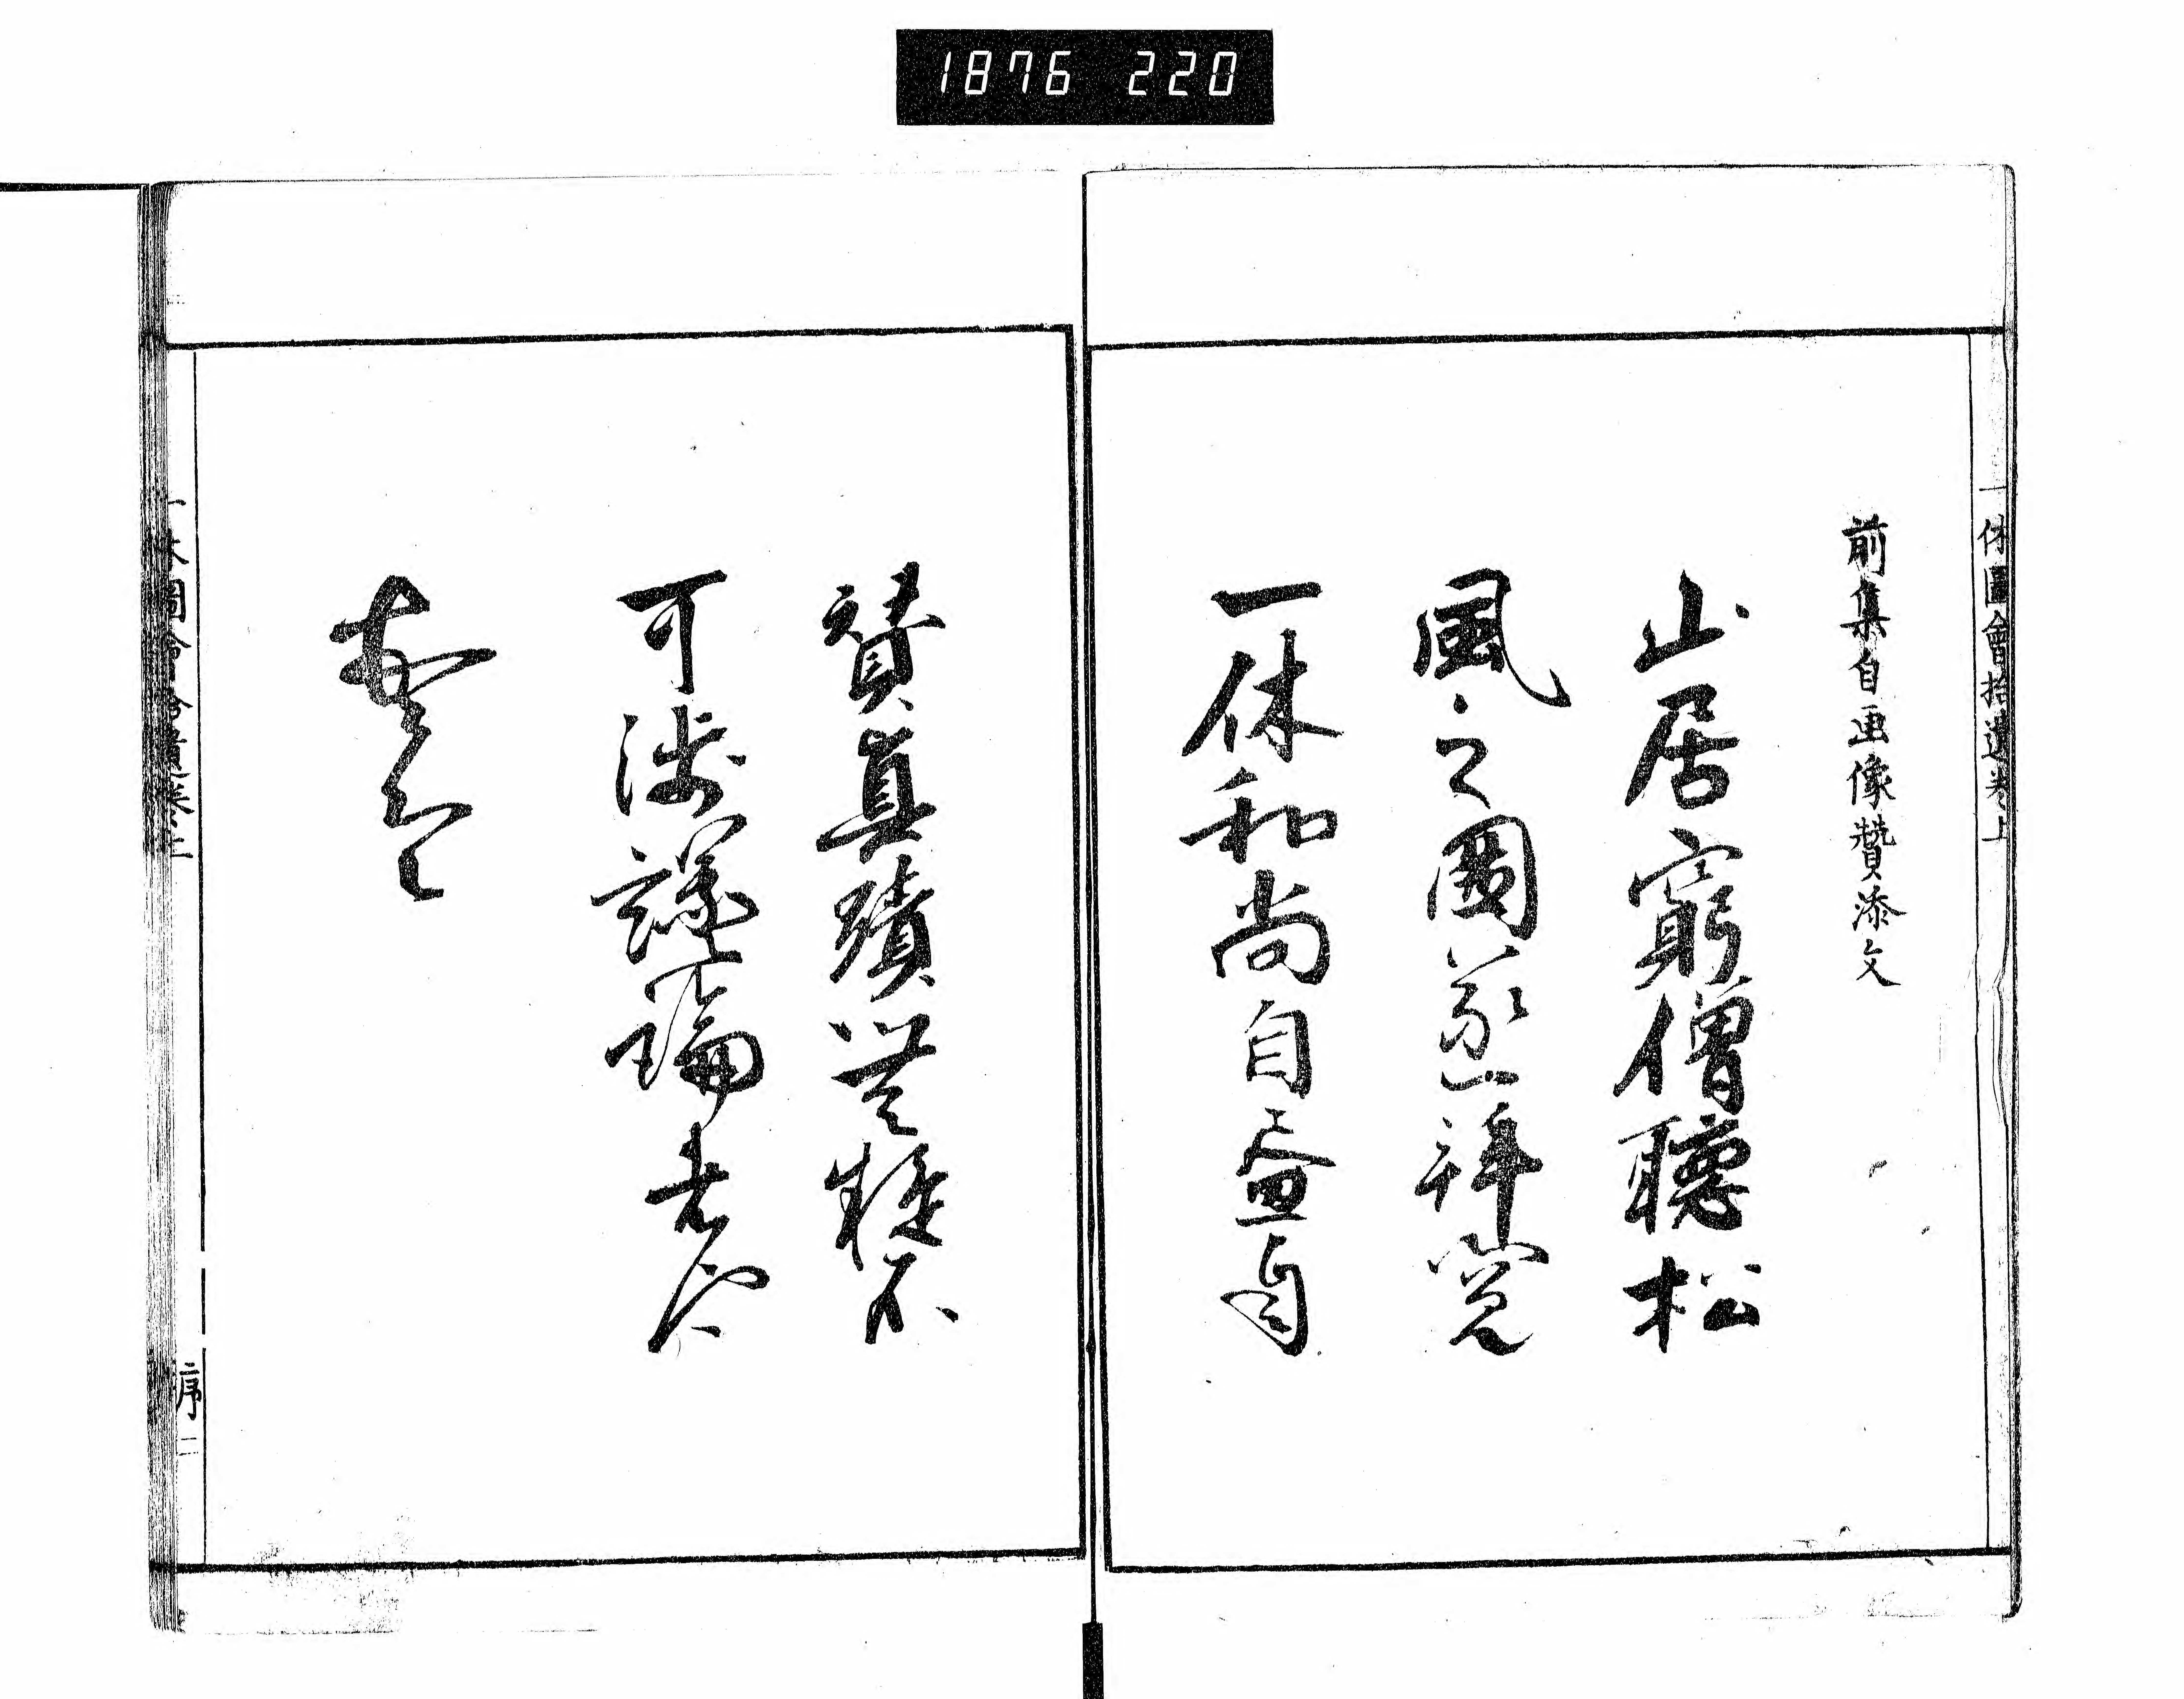 1876 220
一休圖會拾遺卷上
前集自画像贊添文
山居窮僧聴松
風之圖篆拜覽
一休和尚自畫自
賛真蹟無疑不
可涉議論者
一休圖會拾遺卷上
序二